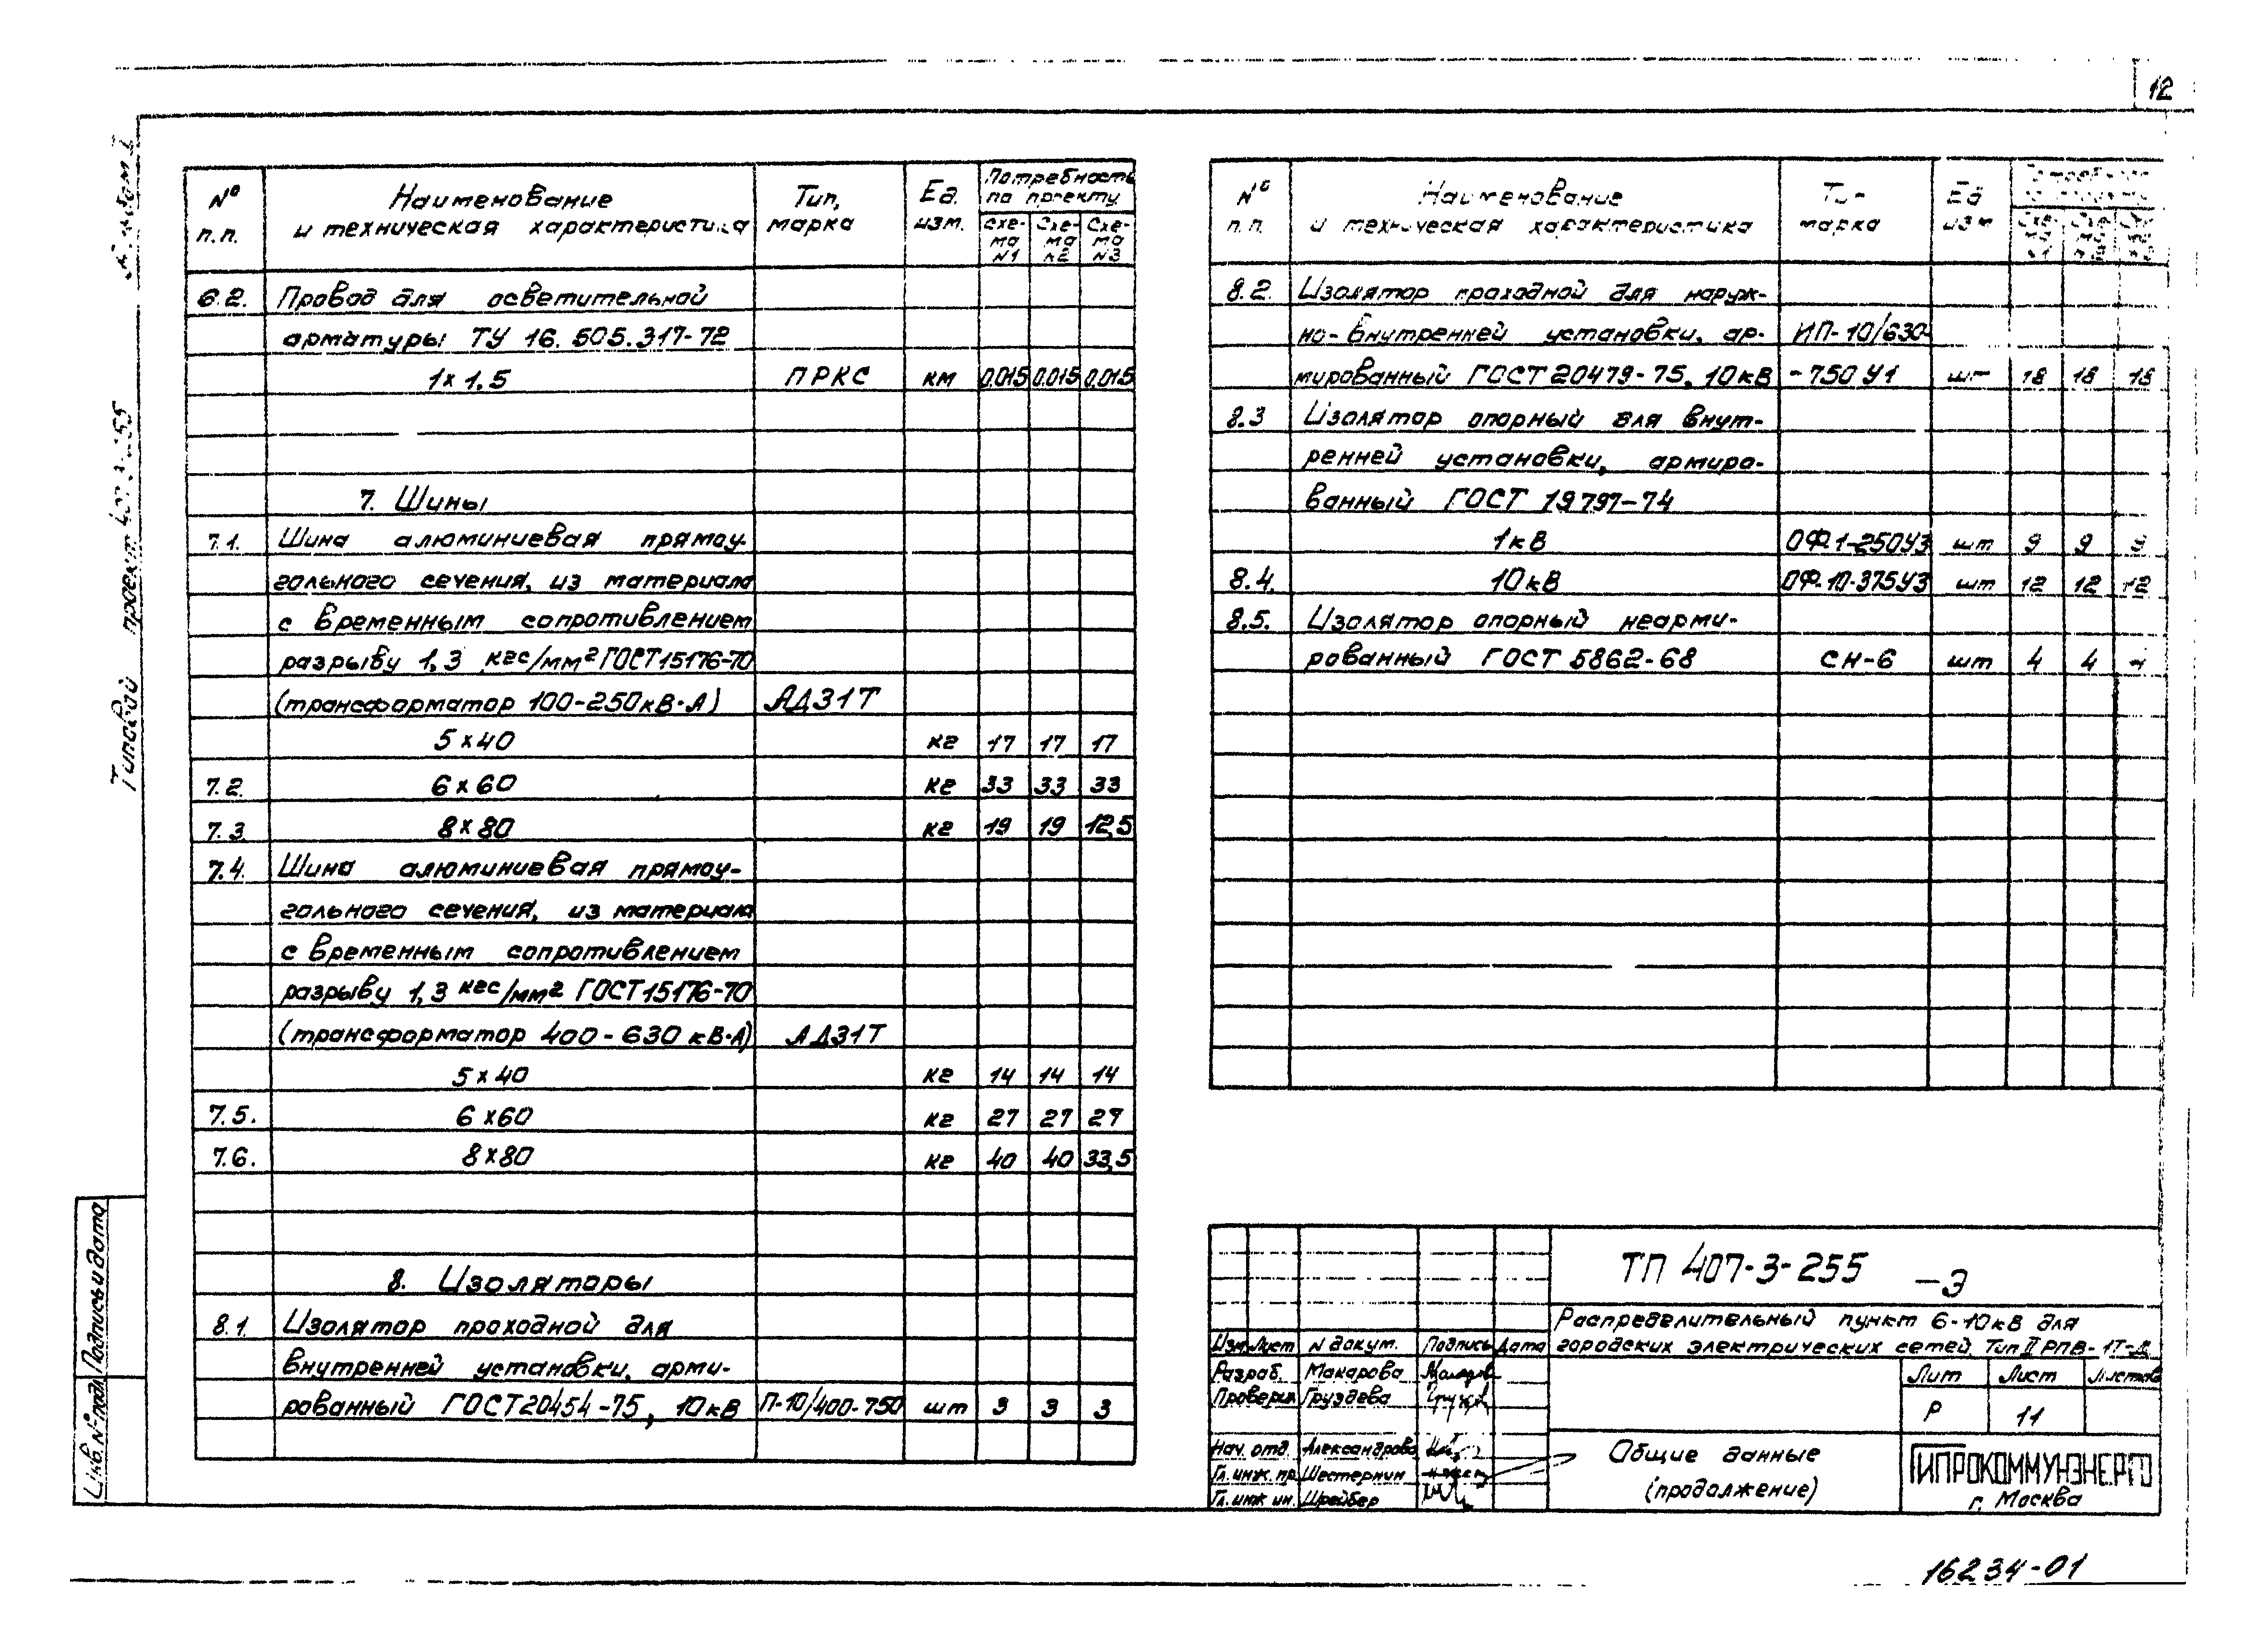 12
№ п.п. Наименование и техническая характеристика Тип, марка Ед. изм. Потребность по проекту
Схема N1 Схема N2 Схема N3
6.2. Провод для осветительной
арматуры ТУ 16.505.317-72
1х1,5 ПРКС км 0,015 0,015 0,015
7. Шины
7.1. Шина алюминиевая прямоу-
гольного сечения, из материала
с временным сопротивлением
разрыву 1,3 кгс/мм² ГОСТ15176-70
(трансформатор 100-250кВ·А) АД31Т
5х40 кг 17 17 17
7.2. 6х60 кг 33 33 33
7.3. 8х80 кг 19 19 12,5
7.4. Шина алюминиевая прямоу-
гольного сечения, из материала
с временным сопротивлением
разрыву 1,3 кгс/мм² ГОСТ15176-70
(трансформатор 400-630 кВ·А) АД31Т
5х40 кг 14 14 14
7.5. 6х60 кг 27 27 27
7.6. 8х80 кг 40 40 33,5
8. Изоляторы
8.1. Изолятор проходной для
внутренней установки, арми-
рованный ГОСТ20454-75, 10кВ П-10/400-750 шт 3 3 3
№ п.п. Наименование и техническая характеристика марка Ед изм
8.2. Изолятор проходной для наруж-
но-внутренней установки, ар- ИП-10/630-
мированный ГОСТ20479-75, 10кВ -750 У1 шт 18 18 18
8.3 Изолятор опорный для внут-
ренней установки, армиро-
ванный ГОСТ 19797-74
1кВ ОФ-1-250У3 шт 9 9 9
8.4. 10кВ ОФ-10-375У3 шт 12 12 12
8.5. Изолятор опорный неарми-
рованный ГОСТ 5862-68 СН-6 шт 4 4 4
Типовой проект
Подпись и дата
Инв. № подл.
ТП 407-3-255 -Э
Распределительный пункт 6-10кВ для
городских электрических сетей. Тип II РПВ-1Т-
Изм. Лист N докум. Подпись Дата
Разраб. Макарова
Проверил Груздева
Нач. отд. Александрова
Гл. инж. пр. Шестернин
Гл. инж ин. Шрейбер
Лит Лист Листов
Р 11
Общие данные
(продолжение)
ГИПРОКОММУНЭНЕРГО
г. Москва
16234-01